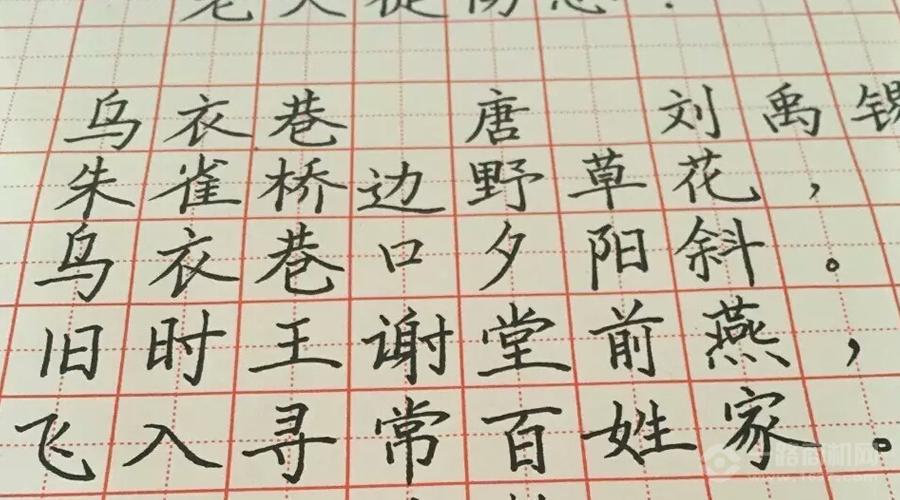 老大徒伤悲！
乌衣巷 唐 刘禹锡
朱雀桥边野草花，
乌衣巷口夕阳斜。
旧时王谢堂前燕，
飞入寻常百姓家。